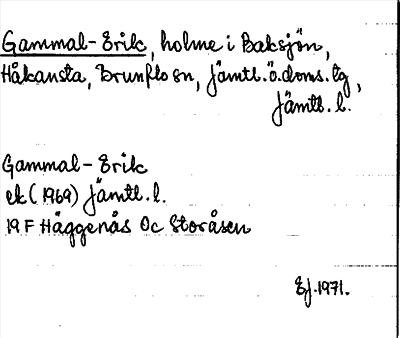 Gammal-Erik, holme i Baksjön,
Håkansta, Brunflo sn, Jämtl.ö.doms.lg,
Jämtl.l.
Gammal-Erik
ek (1969) Jämtl.l.
19F Häggenås Oc Storåsen
Ej.1971.